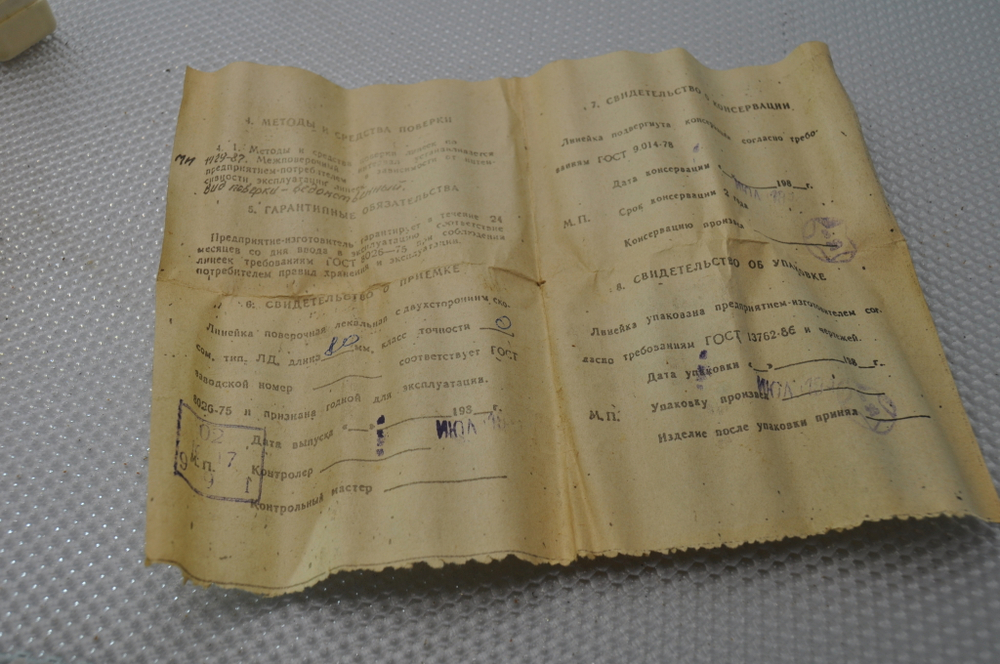 4. МЕТОДЫ И СРЕДСТВА ПОВЕРКИ
4. 1. Методы и средства поверки линеек по
МИ 1929-87. Межповерочный устанавливается
предприятием-потребителем в зависимости от интен-
сивности эксплуатации линеек
Вид поверки - ведомственный.
5. ГАРАНТИЙНЫЕ ОБЯЗАТЕЛЬСТВА
Предприятие-изготовитель гарантирует в течение 24
месяцев со дня ввода в эксплуатацию соответствие
линеек требованиям ГОСТ 8026—75 при соблюдении
потребителем правил хранения и эксплуатации.
6. СВИДЕТЕЛЬСТВО О ПРИЕМКЕ
Линейка поверочная лекальная с двухсторонним ско-
сом, тип. ЛД, длина мм, класс точности 0
заводской номер соответствует ГОСТ
8026-75 и признана годной для эксплуатации.
Дата выпуска « » 198 г.
ИЮЛ
02
М.П. 17
9 9 1
Контролер
Контрольный мастер
7. СВИДЕТЕЛЬСТВО О КОНСЕРВАЦИИ
Линейка подвергнута консервации согласно требо-
ваниям ГОСТ 9.014-78
Дата консервации « 198 г.
ИЮЛ
М.П. Срок консервации 2 года
Консервацию произвел
8. СВИДЕТЕЛЬСТВО ОБ УПАКОВКЕ
Линейка упакована предприятием-изготовителем сог-
ласно требованиям ГОСТ 13762-86 и чертежей.
Дата упаковки « » 198 г.
ИЮЛ
М.П. Упаковку произвел
Изделие после упаковки принял